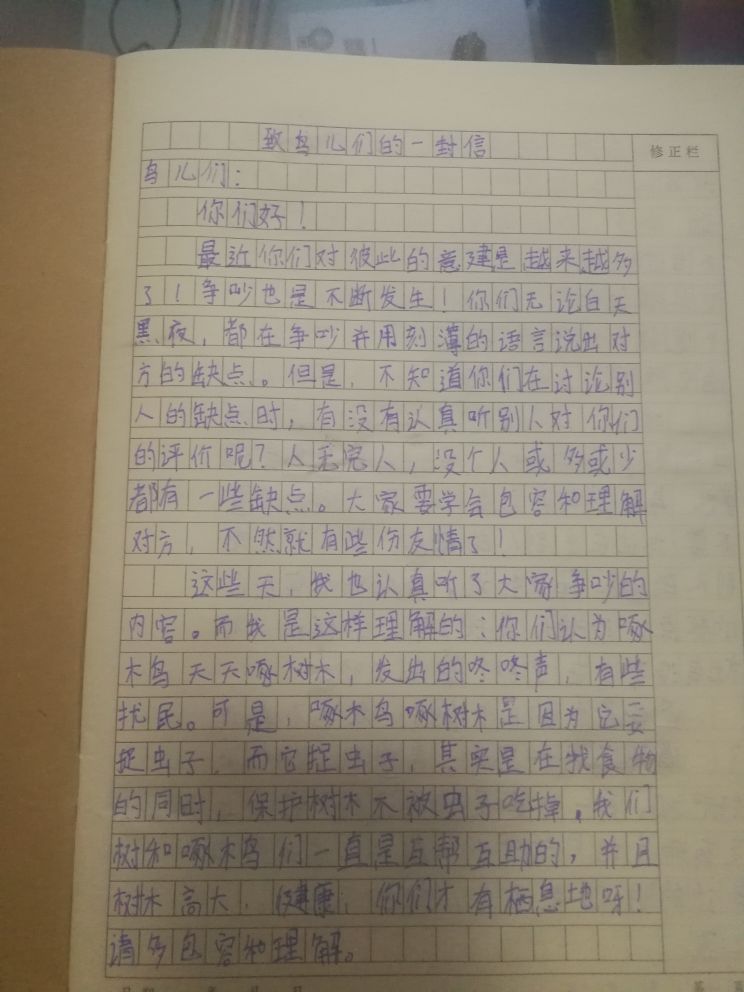 致鸟儿们的一封信
修正栏
鸟儿们：
你们好！
最近你们对彼此的意建是越来越多
了！争吵也是不断发生！你们无论白天
黑夜，都在争吵并用刻薄的语言说出对
方的缺点。但是，不知道你们在讨论别
人的缺点时，有没有认真听别人对你们
的评价呢？人无完人，没个人或多或少
都有一些缺点。大家要学会包容和理解
对方，不然就有些伤友情了！
这些天，我也认真听了大家争吵的
内容。而我是这样理解的：你们认为啄
木鸟天天啄树木，发出的咚咚声，有些
扰民。可是，啄木鸟啄树木是因为它要
捉虫子，而它捉虫子，其实是在找食物
的同时，保护树木不被虫子吃掉，我们
树和啄木鸟们一直是互帮互助的，并且
树木高大、健康，你们才有栖息地呀！
请多包容和理解。